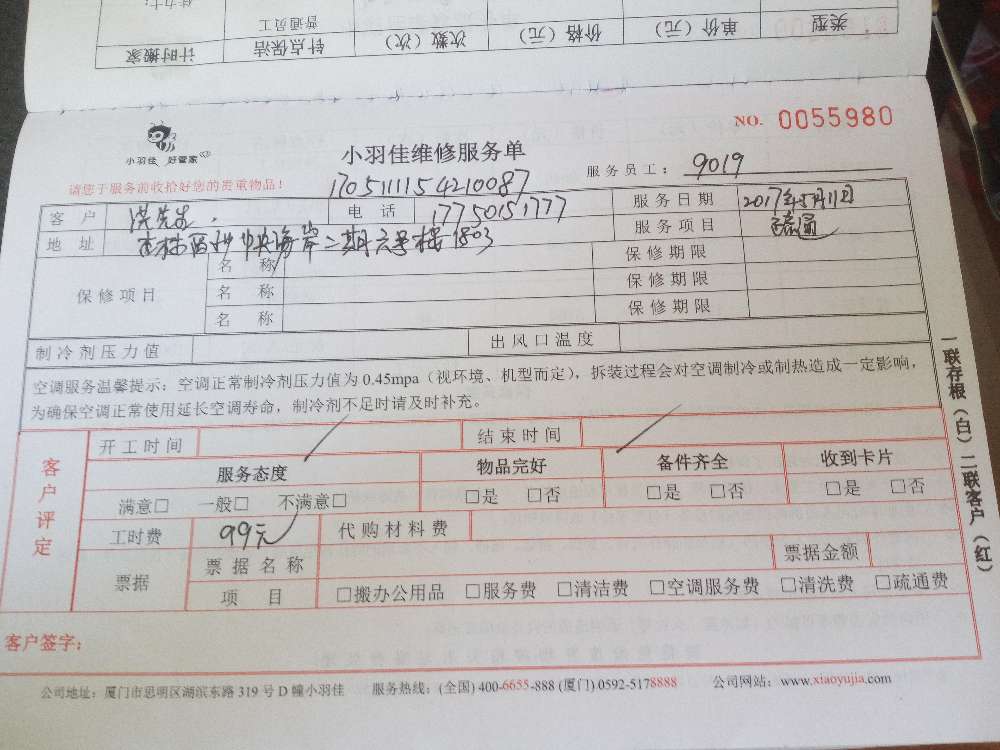 计时搬家 钟点保洁 次数（次） 价格（元） 单价（元） 类型
普通员工
NO. 0055980
小羽佳 好管家
小羽佳维修服务单
服务员工： 9019
请您于服务前收拾好您的贵重物品！
170511154210087
客户 洪先生 电话 17750151777 服务日期 2017年5月11日
地址 二期六号楼1803 服务项目 疏通
保修项目
名称 保修期限
名称 保修期限
名称 保修期限
制冷剂压力值 出风口温度
空调服务温馨提示：空调正常制冷剂压力值为 0.45mpa（视环境、机型而定），拆装过程会对空调制冷或制热造成一定影响，
为确保空调正常使用延长空调寿命，制冷剂不足时请及时补充。
客户评定
开工时间 结束时间
服务态度 物品完好 备件齐全 收到卡片
满意□ 一般□ 不满意□ □是 □否 □是 □否 □是 □否
工时费 99元 代购材料费
票据 票据名称 票据金额
项目 □搬办公用品 □服务费 □清洁费 □空调服务费 □清洗费 □疏通费
客户签字：
一联存根（白）二联客户（红）
公司地址：厦门市思明区湖滨东路 319 号 D 幢小羽佳 服务热线：(全国) 400-6655-888 (厦门) 0592-5178888 公司网站：www.xiaoyujia.com